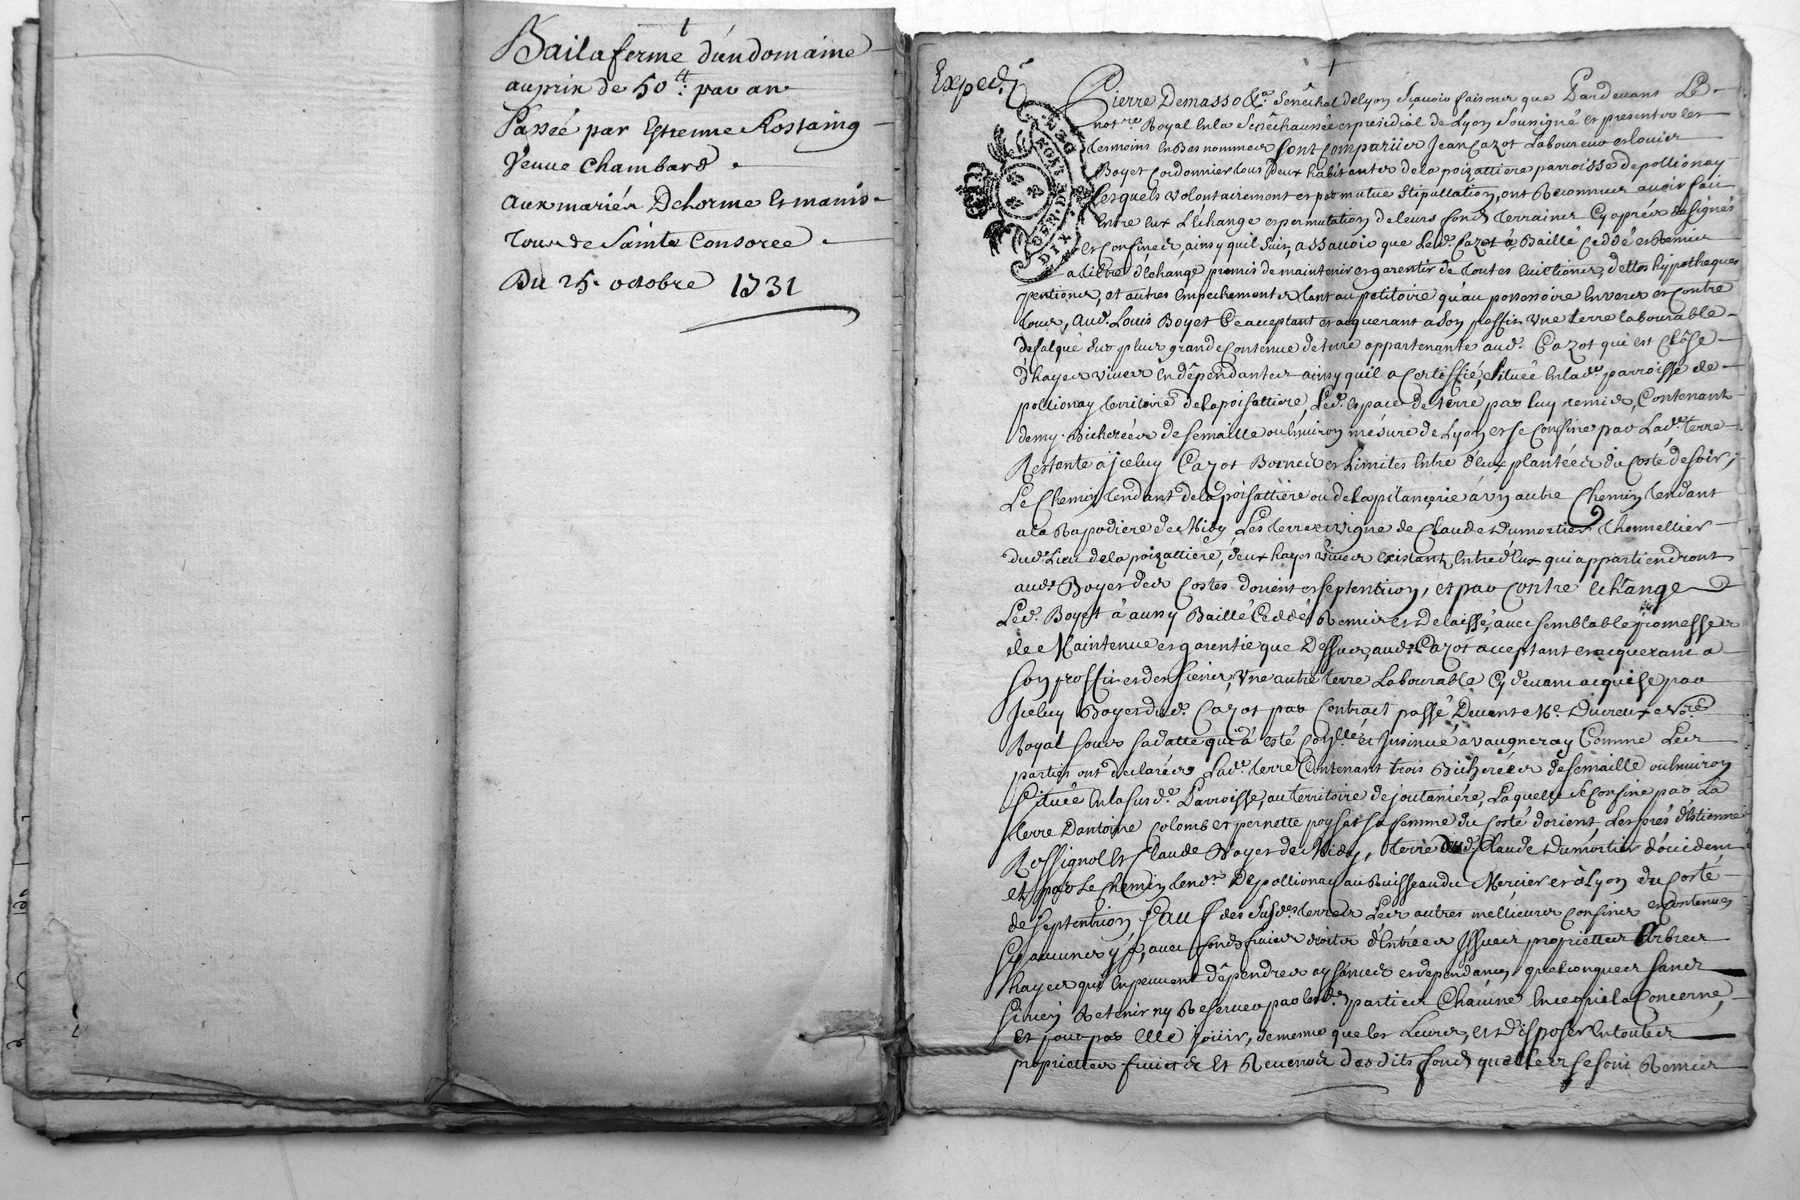 Bail a ferme d'un domaine
au prix de 50tt: par an
Passée par Estienne Rostaing
Veuve Chambard
aux mariés Delorme Et manis-
tour de Sainte Consorce
Du 25. octobre 1731
Exped.
DIX DEN.
Pierre Demasso &a. Senéchal de Lyon Scavoir faisons que Pardevant Le d.
notre. Royal En la Senêchaussée et presidial de Lyon Sousigné et presents les
temoins en Bas nommés Sont Comparües Jean Cazot Laboureur et Louis
Boyet Cordonnier tous deux habitants de la poizattiere parroisse de pollionay
Lesquels volontairement et par mutue Stipullation, ont Reconnus avoir fait
Entre Eux L'échange et permutation de leurs fonds terrains Cy aprés designés
et Confinés, ainsy quil Suit, assavoir que Le d. Cazot â Baillé Ceddé et Remis
a titre d'échange promis de maintenir et garentir de toutes Evictions, dettes hypotheques
pentions, et autres Empechements tant au petitoire qu'au possessoire Envers et Contre
tous, aud. Louis Boyet Ce acceptant et acquerant a Son proffit une terre labourable
defalqué du plus grande Contenue de terre appartenante aud. Cazot qui est Clôse
d'hayes vives En dépendantes ainsy quil a Certiffié, Située En lade. parroisse de
pollionay territoire de la poisattiere, Led. espace de terre par luy remis, Contenant
demy Bicherées de Semaille ou Environ mesure de Lyon et se Confine par Lade. terre
Restente a Jceluy Cazot Bornes et Limites Entre d'eux plantées du Costé de Soir,
Le Chemin tendant de la poisattiere ou de la pitancerie â un autre Chemin tendant
a la Rapodiere de Midy Les terre et vigne de Claude Dumortier thonnellier
dud. Lieu de la poizattiere, deux hayes vives Existant Entre d'Eux qui appartiendront
aud. Boyet des Costés d'orient et Septentrion, et par Contre echange
Led. Boyet â aussy Baillé Ceddé Remis et Delaissé, avec semblable promesses
de Maintenue et garentie que Dessus, aud. Cazot acceptant et acquerant a
Son proffit et des Siens, une autre terre Labourable Cy devant acquise par
Jceluy Boyet dud. Cazot par Contract passé Devant Me. Ducreux Nore.
Royal Sous Sa datte qui â esté Conllé et Jnsinué a vaugneray Comme Les
parties ont declarées Lade. terre Contenant trois Bicherées de Semaille ou Environ
Située En la Sus de. Parroisse, au territoire de joutaniere, Laquelle se Confine par La
terre D'antoine Colomb et pernette poysat Sa femme du Costé d'orient, Les prés d'Estienne
Rossignol et Claude Boyet de Midy, terre dud. Claude Dumortier d'occident
et par Le Chemin tendt. De pollionay au Ruisseau du Mercier et a Lyon du Costé
de Septentrion Sauf des Susdes. terres Les autres meilleurs Confins et Contenues
Sy aucunes y a, avec fonds fruits droits d'Entrées Jssues proprietés Arbres
hayes qui En peuvent dépendres aysances et dependances quelconques Sans
Si rien Retenir ny Reserver par lesd. parties Chacune En ce qui la Concerne,
Et pour par Elle Jouir, de meme que les Leurs, et disposer En toutes
proprietés fruits et Revenus des dits fonds quelles se sont Remis